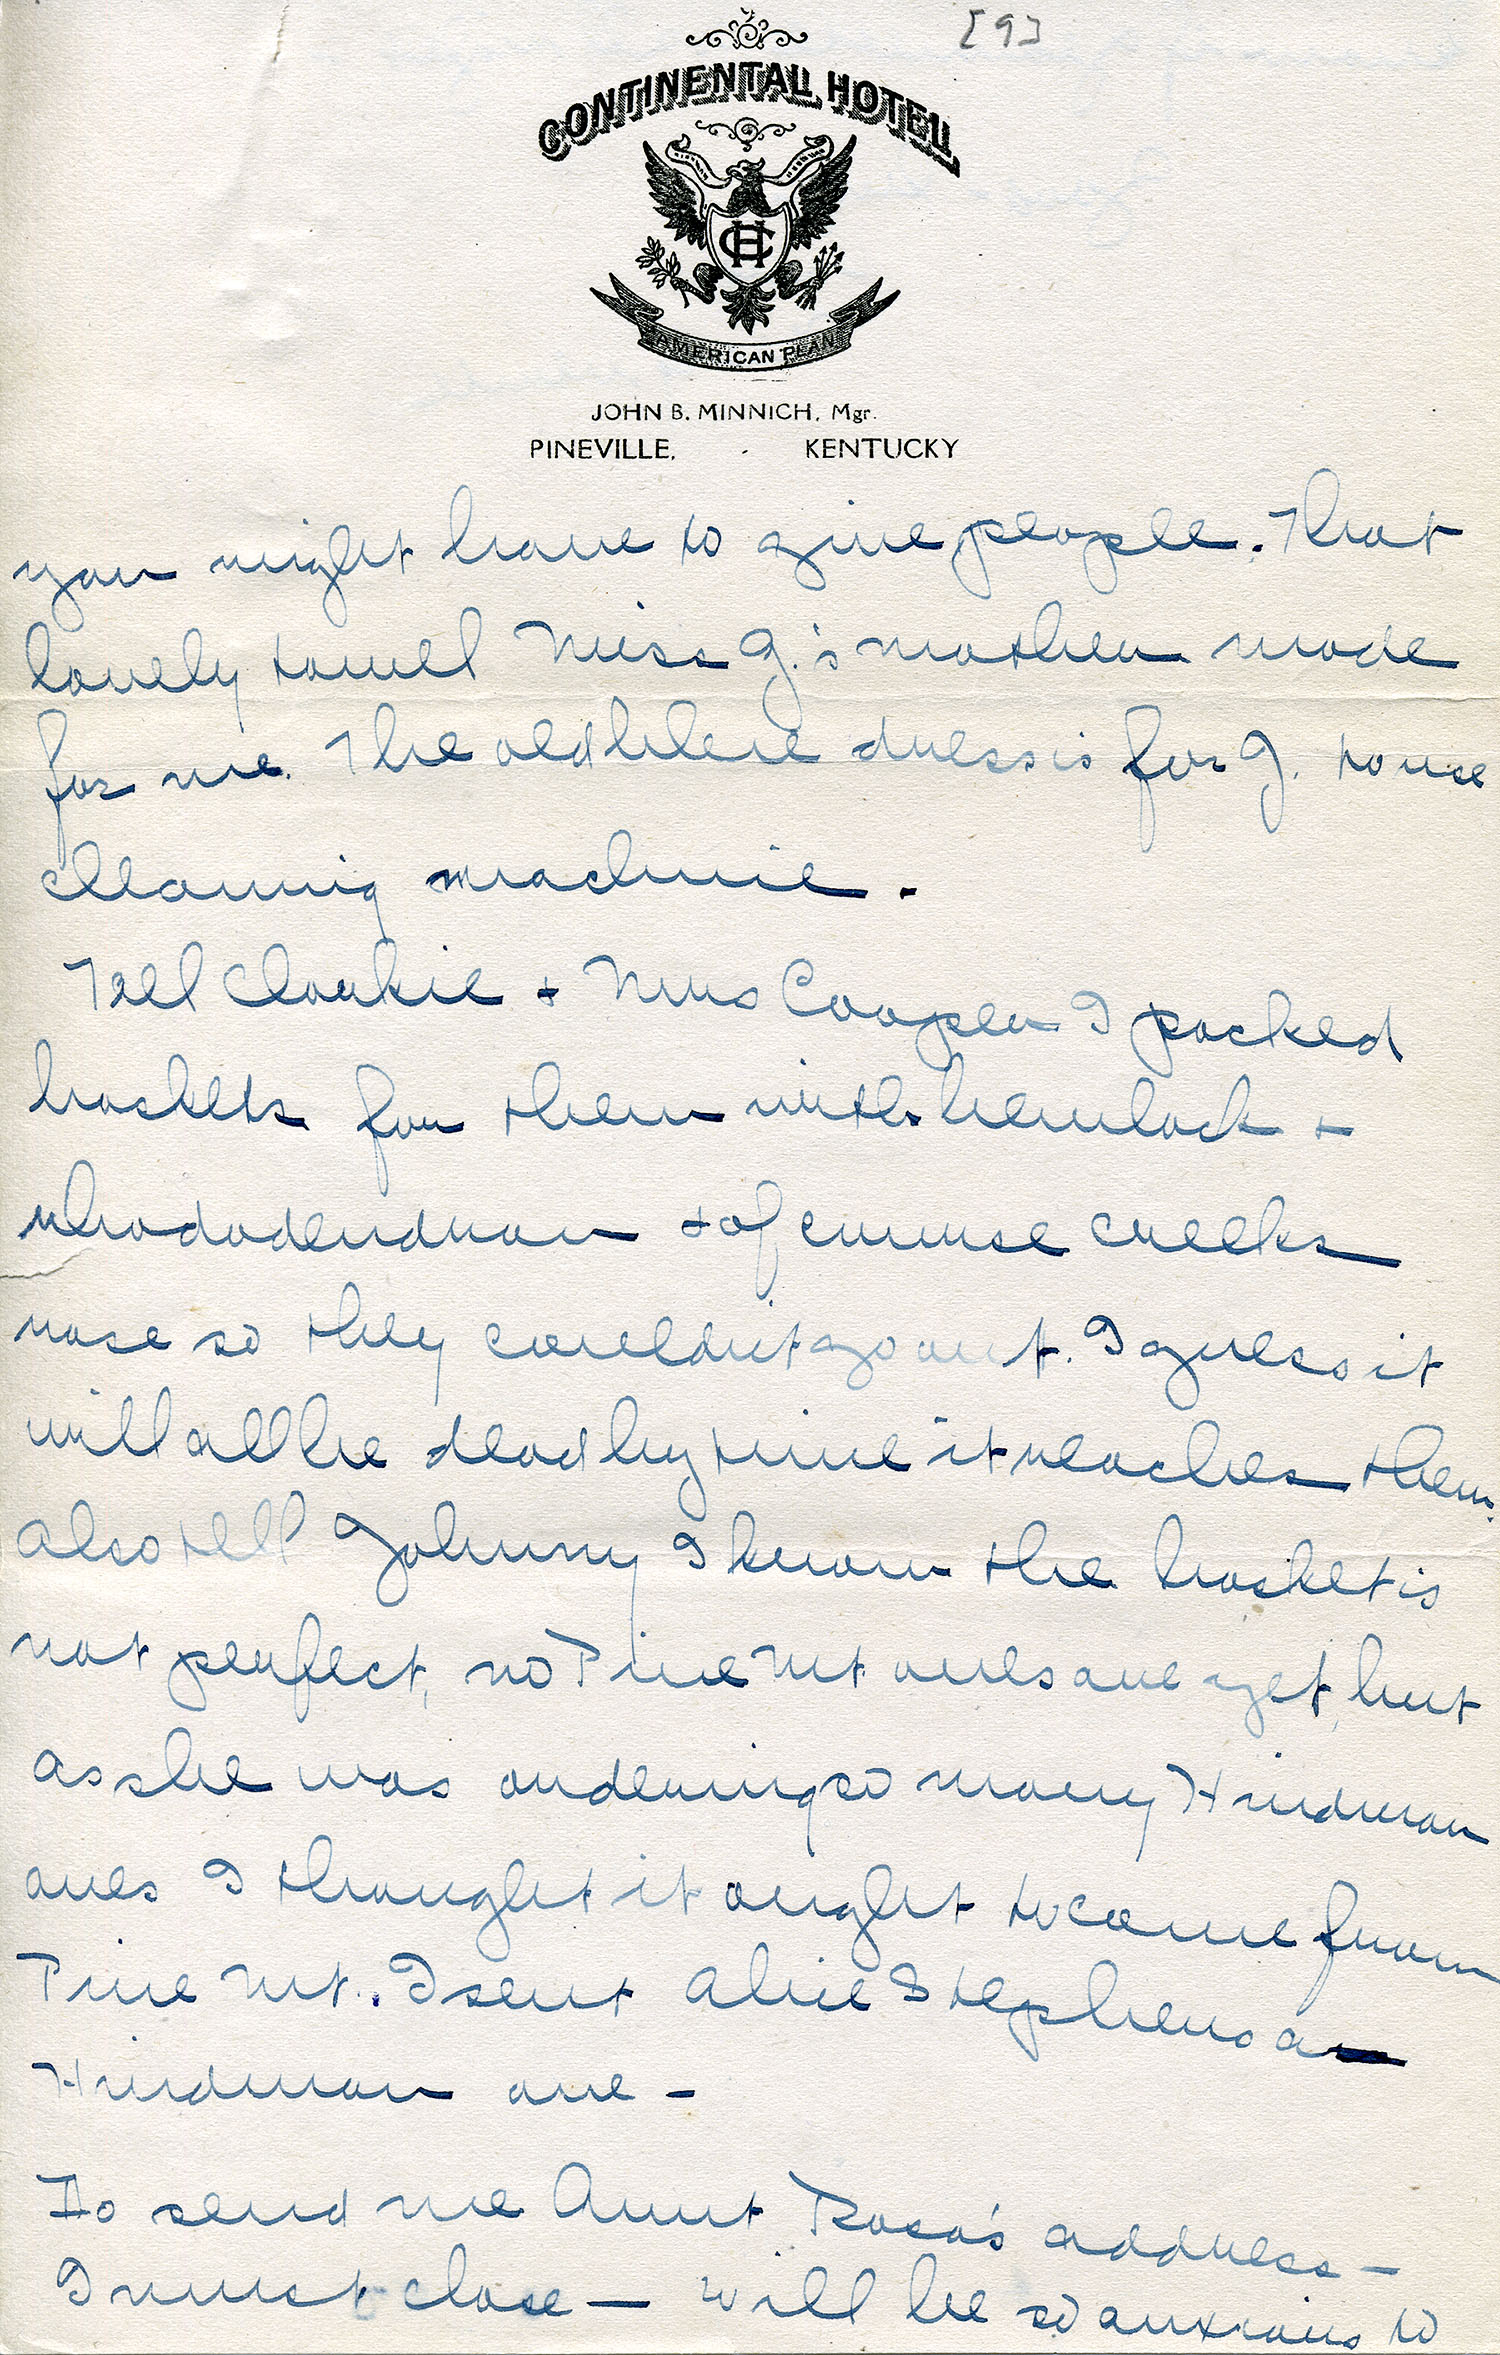 [9]
CONTINENTAL HOTEL
CH
AMERICAN PLAN
JOHN B. MINNICH, Mgr.
PINEVILLE, - KENTUCKY
you might have to give people. That
lovely towel Miss G.'s mother made
for me. The old blue dress is for G. to use
cleaning machine.
Tell & Mrs Cooper I packed
baskets for them with hemlock &
rhododendron & of course creeks
rose so they couldn't go out. I guess it
will all be dead by time it reaches them.
Also tell Johnny I know the basket is
not perfect, no Pine Mt. ones are yet, but
as she was ordering so many Hindman
ones I thought it ought to come from
Pine Mt.. I sent Alice Stephens a
Hindman one -
Do send me Aunt Rosa's address -
I must close - will be so anxious to